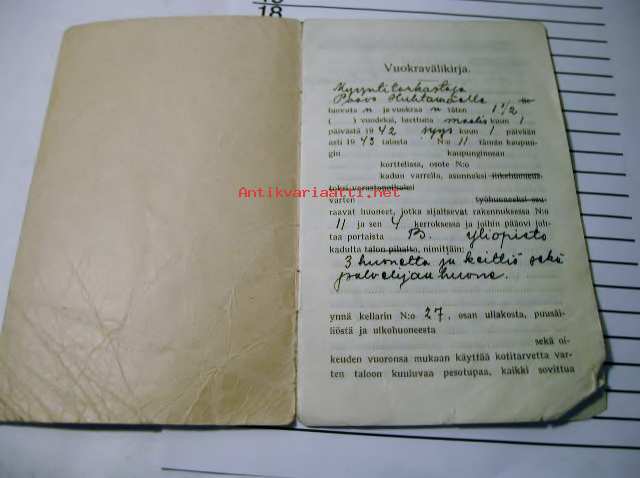 18
Vuokravälikirja.
Myyntitarkastaja
Paavo Huhtamaalle
luovuta n ja vuokraa n täten 1 1/2
( ) vuodeksi, luettuna maalis kuun 1
päivästä 19 42 syys kuun 1 päivään
asti 19 43 talosta N:o 11 tämän kaupun-
gin kaupunginosan
korttelissa, osote N:o
kadun varrella, asunnoksi liikehuoneus-
toksi varastopaikaksi
varten työhuoneeksi seu-
raavat huoneet, jotka sijaitsevat rakennuksessa N:o
11 ja sen 4 kerroksessa ja joihin pääovi joh-
taa portaista B. yliopisto
kadulta talon pihalta, nimittäin:
3 huonetta ja keittiö sekä
palvelijan huone.
ynnä kellarin N:o 27, osan ullakosta, puusäi-
liöstä ja ulkohuoneesta
sekä oi-
keuden vuoronsa mukaan käyttää kotitarvetta var-
ten taloon kuuluvaa pesotupaa, kaikki sovittua
Antikvariaatti.net